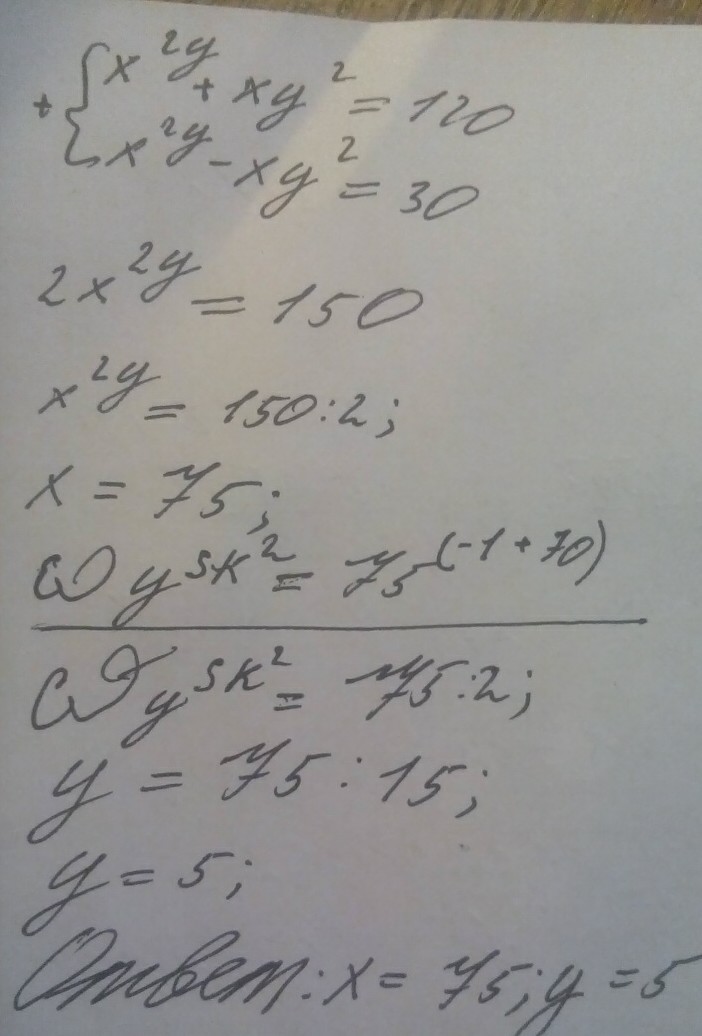 + { x^2y + xy^2 = 120
x^2y - xy^2 = 30
2x^2y = 150
x^2y = 150:2;
x = 75;
ω y^sk^2 = 75^(-1+70)
y^sk^2 = 75:2;
y = 75:15;
y = 5;
Ответ: x = 75; y = 5